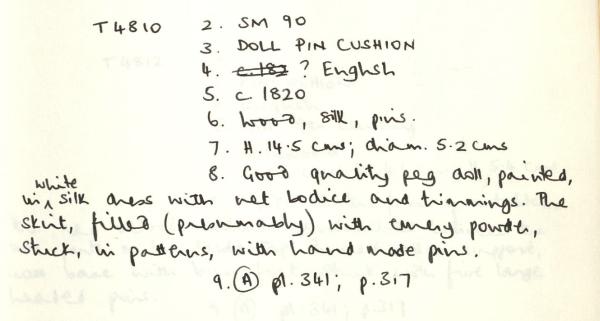 T4810 2. SM 90
3. DOLL PIN CUSHION
4. c.182 ? English
5. c. 1820
6. Wood, silk, pins.
7. H. 14.5 cms; diam. 5.2 cms
8. Good quality peg doll, painted,
in white silk dress with net bodice and trimmings. The
skirt, filled (presumably) with emery powder,
stuck, in patterns, with hand made pins.
9. (A) pl. 341; p. 317